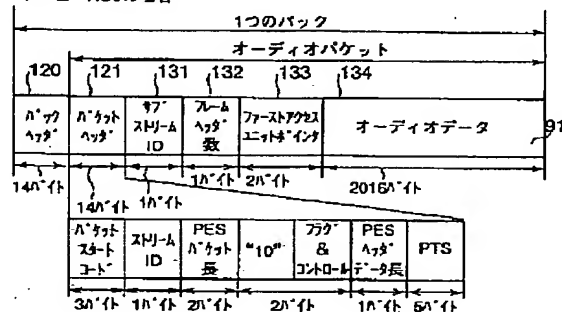 1つのパック
オーディオパケット
120
121
131
132
133
134
パック
ヘッダ
パケット
ヘッダ
サブ
ストリーム
ID
フレーム
ヘッダ
数
ファーストアクセス
ユニットポインタ
オーディオデータ
91
14バイト
14バイト
1バイト
1バイト
2バイト
2016バイト
パケット
スタート
コード
ストリーム
ID
PES
パケット
長
"10"
フラグ
&
コントロール
PES
ヘッダ
データ長
PTS
3バイト
1バイト
2バイト
2バイト
1バイト
5バイト